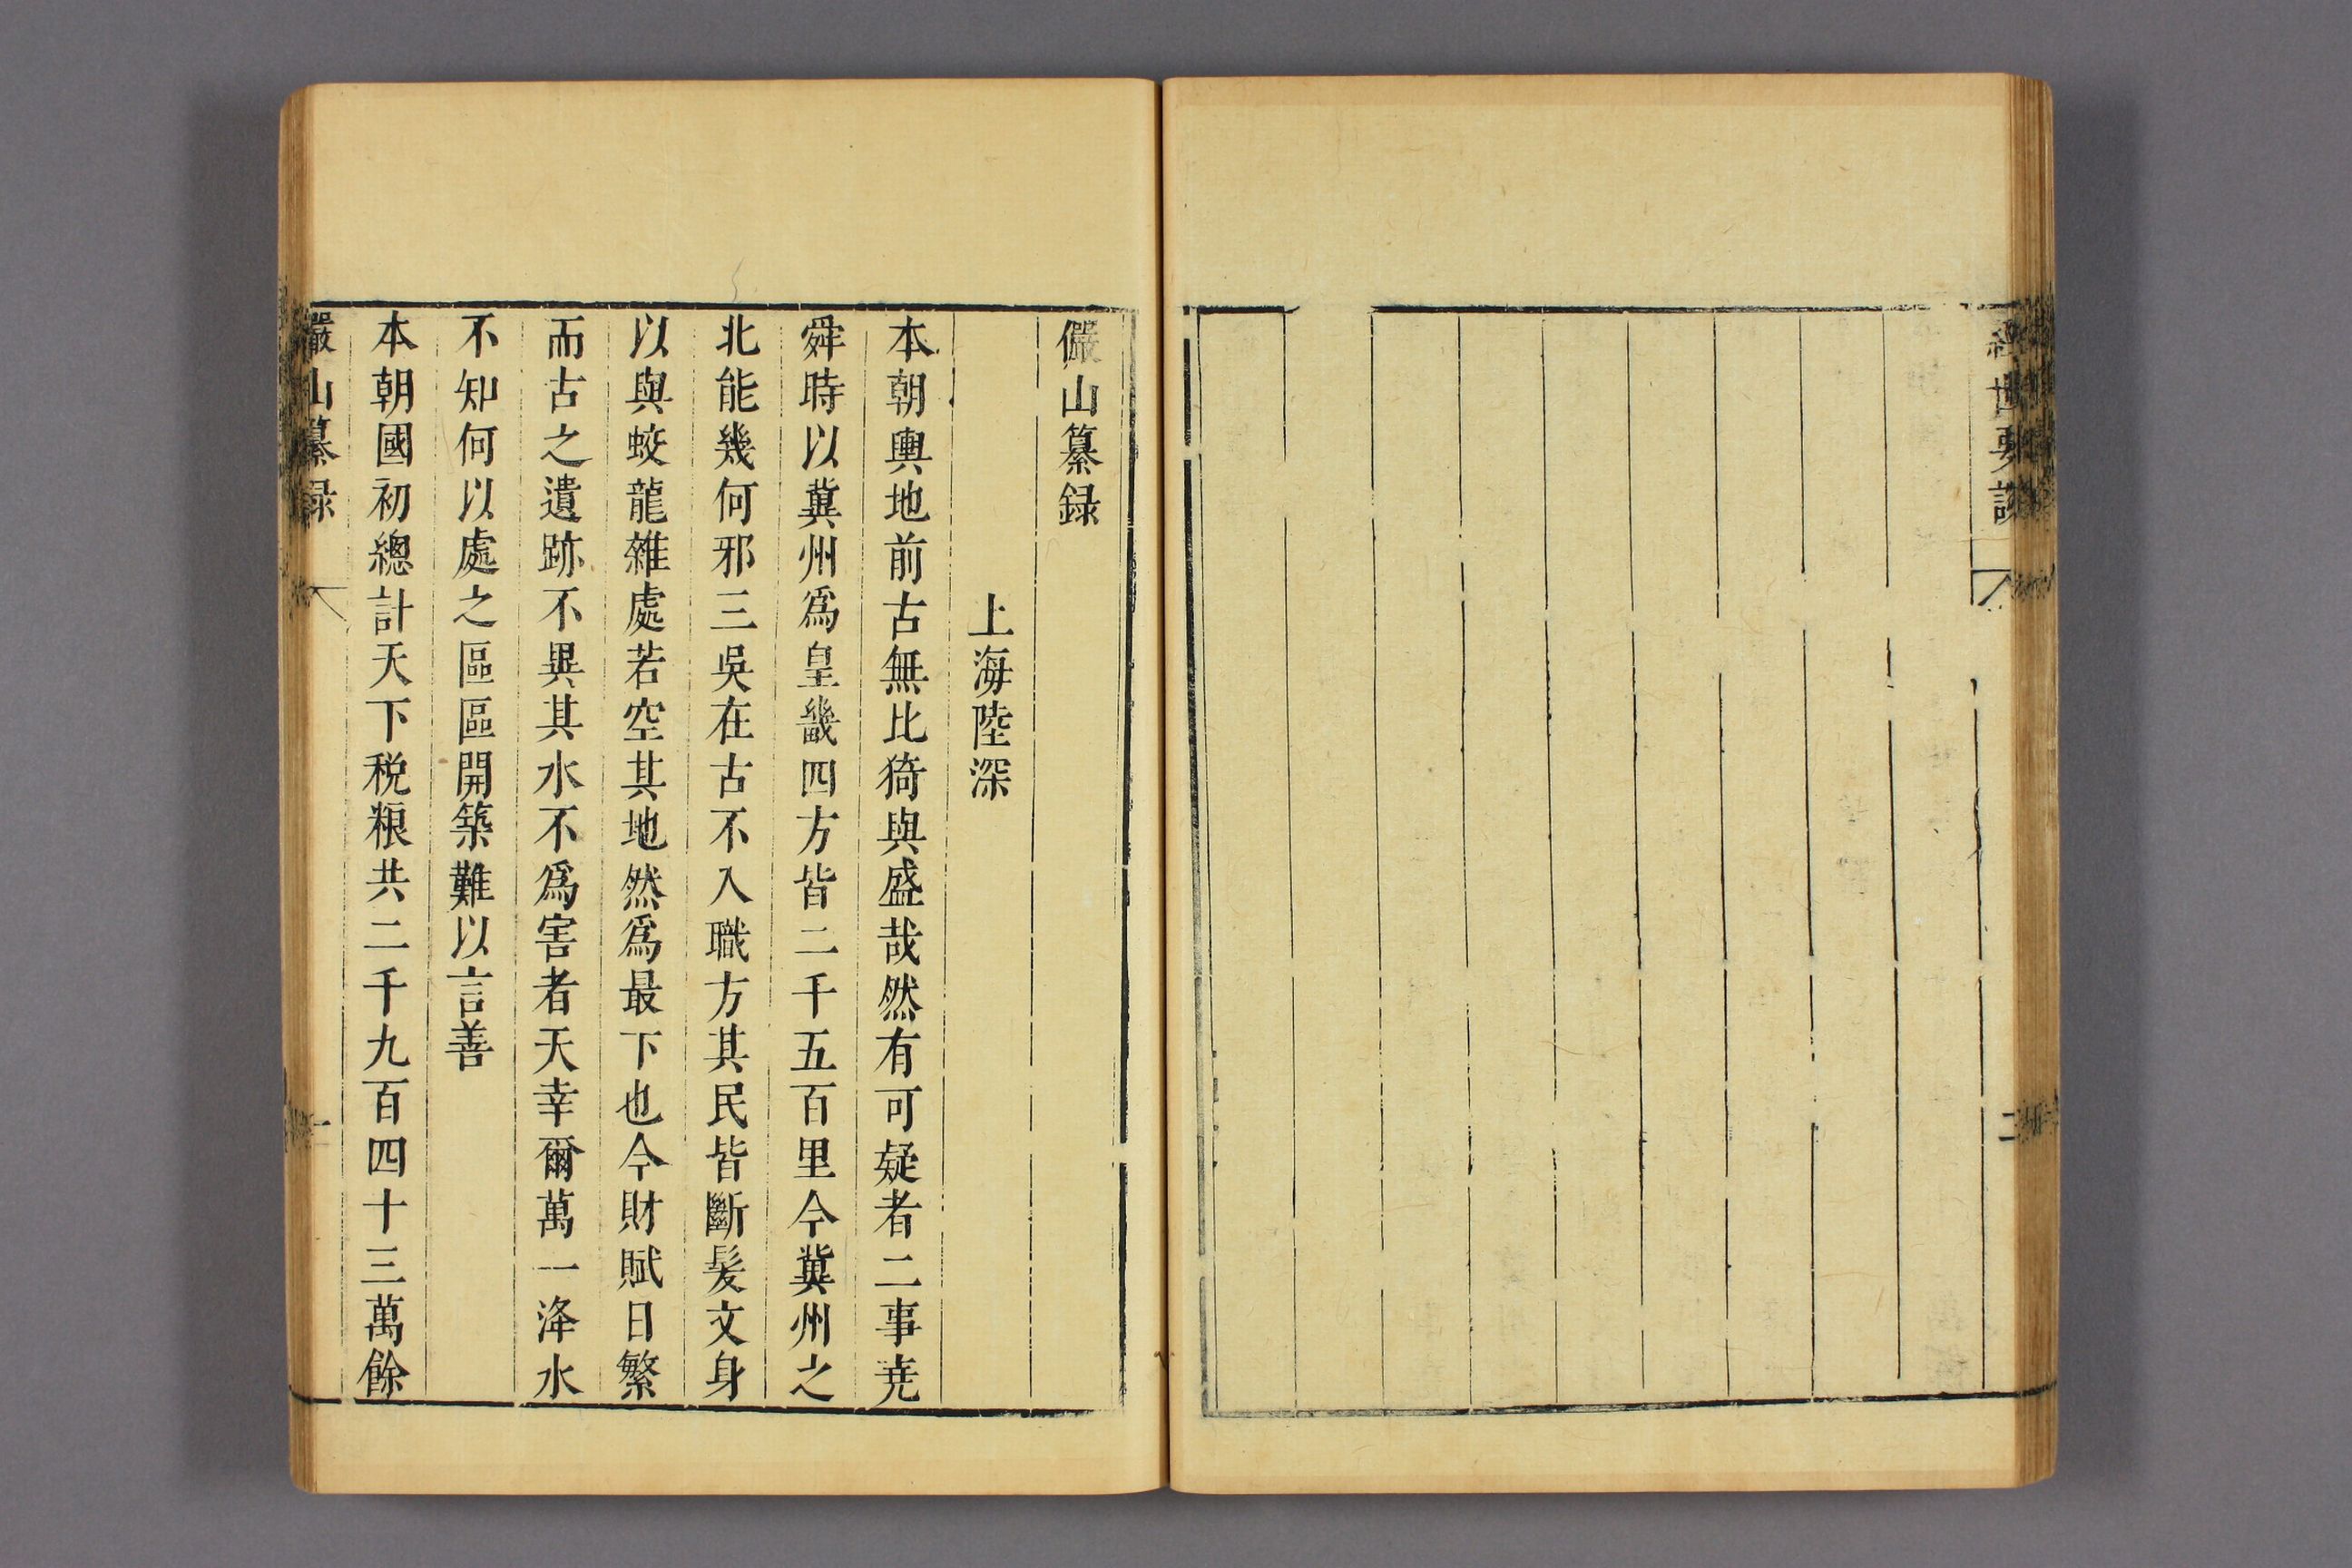 經世要談
二
儼山纂録
上海陸深
本朝輿地前古無比猗與盛哉然有可疑者二事尭
舜時以冀州爲皇畿四方皆二千五百里今冀州之
北能幾何邪三吳在古不入職方其民皆斷髪文身
以與蛟龍雜處若空其地然爲最下也今財賦日繁
而古之遺跡不異其水不爲害者天幸爾萬一洚水
不知何以處之區區開築難以言善
本朝國初總計天下税粮共二千九百四十三萬餘
嚴山纂録
一